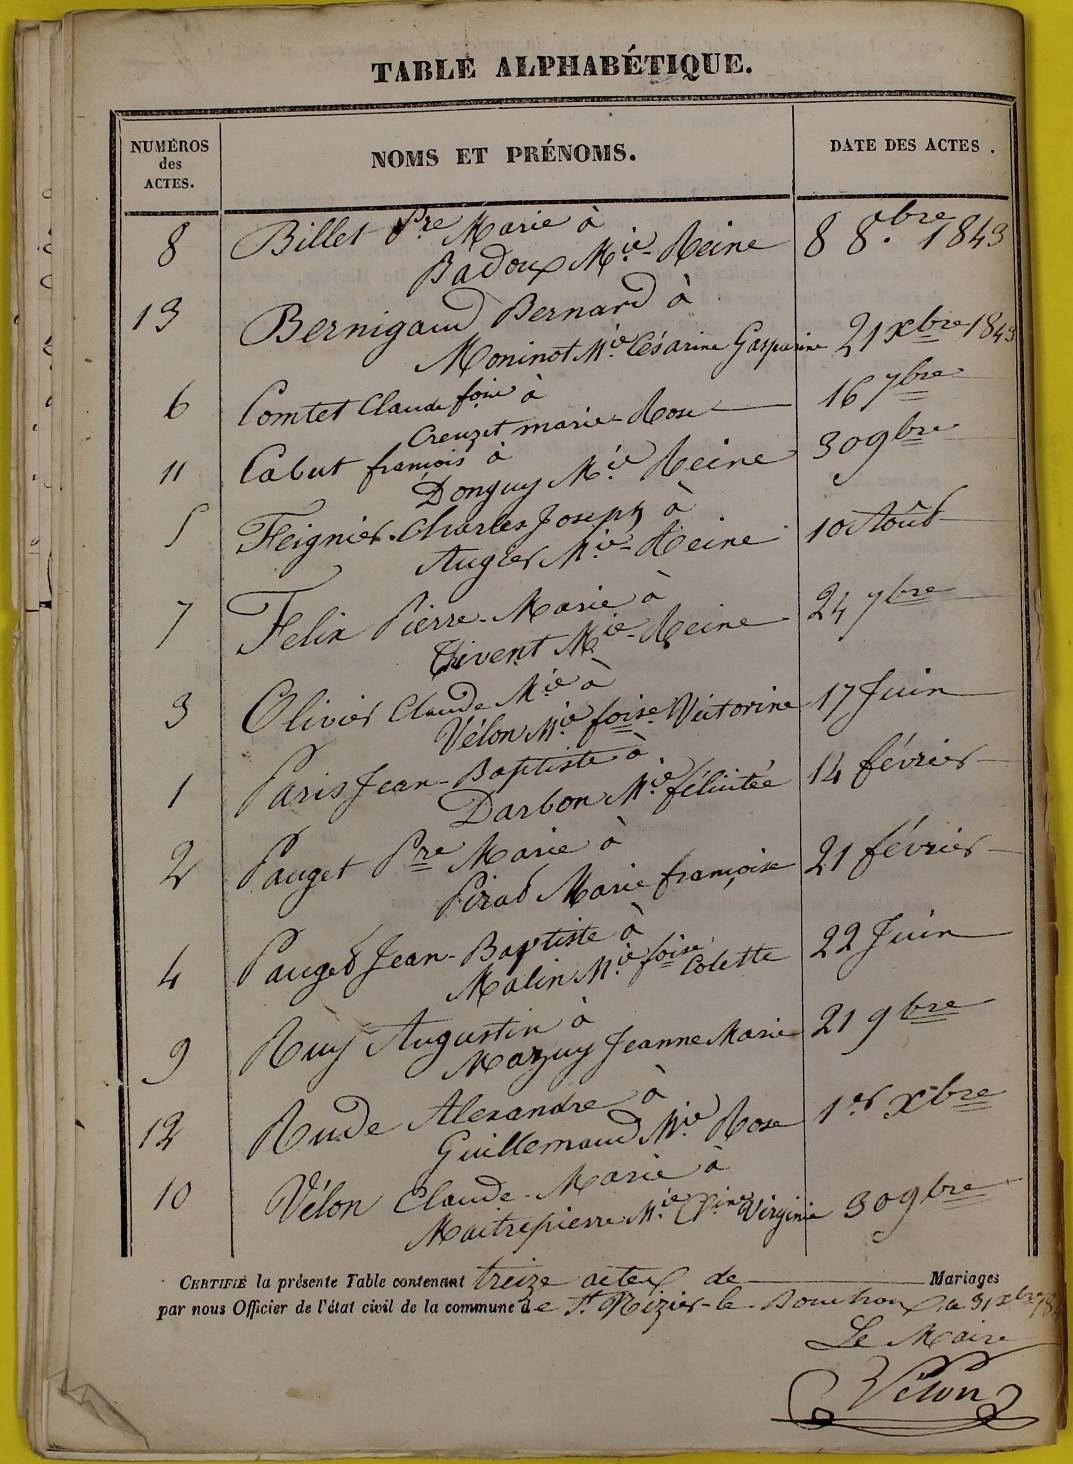 TABLE ALPHABÉTIQUE.
NUMÉROS des ACTES.
NOMS ET PRÉNOMS.
DATE DES ACTES.
8 Billet Pre Marie à 8 8.bre 1843
Badoux Mie-Reine
13 Bernigaud Bernard à
Moninot Mie Césarine Gasparine 21 xbre 1843
6 Comtet Claude foise à 16 7bre
Creuzet marie-Rose
11 Cabut françois à 30 9bre
Donguy Mie Reine
5 Feignier Charles Joseph à 10 Août
Augier Mie-Reine
7 Felix Pierre-Marie à 24 7bre
Tivent Mie-Reine
3 Olivier Claude Mie à 17 Juin
Vélon Mie foise Victorine
1 Paris Jean-Baptiste à 14 février
Darbon Mie félicitée
2 Pauget Pre Marie à 21 février
Pirad Marie françoise
4 Pauget Jean-Baptiste à 22 Juin
Malin Mie foise Colette
9 Ruy Augustin à 21 9bre
Mazuy Jeanne Marie
12 Rude Alexandre à 1er xbre
Guillemaud Mie Rose
10 Vélon Claude-Marie à
Maitrepierre Mie Virginie 30 9bre
CERTIFIÉ la présente Table contenant treize actes de Mariages
par nous Officier de l'état civil de la commune de St. Nizier-le-Bouchoux, le 31 xbre 184
Le Maire
Vélon